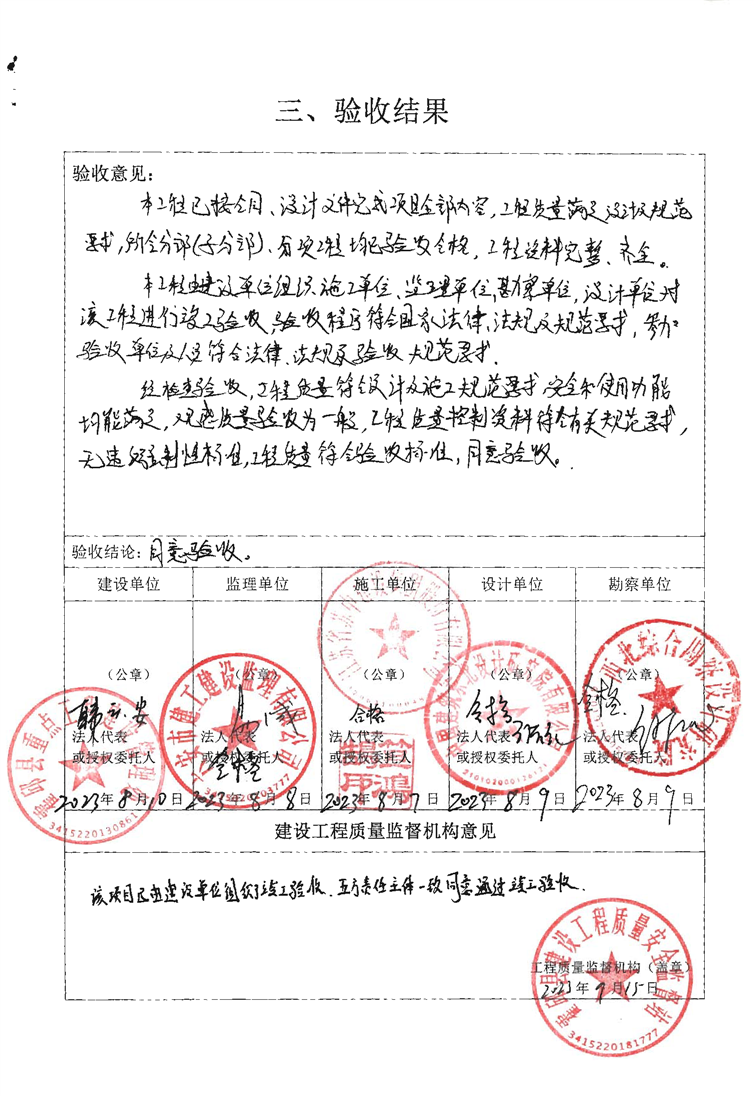 三、验收结果
验收意见:
本工程已按合同、设计文件完成项目全部内容,工程质量满足设计及规范
要求,所含分部(子分部)、分项工程均已验收合格,工程资料完整、齐全。
本工程由建设单位组织施工单位、监理单位,勘察单位,设计单位对
该工程进行竣工验收,验收程序符合国家法律、法规及规范要求,参加
验收单位及人员符合法律、法规及验收规范要求.
经检查验收,工程质量符合设计及施工规范要求,安全和使用功能
均能满足,观感质量验收为一般,工程质量控制资料符合有关规范要求,
无违反强制性标准,工程质量符合验收标准,同意验收。
验收结论:同意验收。
建设单位 监理单位 施工单位 设计单位 勘察单位
(公章) (公章) (公章) (公章) (公章)
合格 合格
法人代表 法人代表 法人代表 法人代表 法人代表
或授权委托人 或授权委托人 或授权委托人 或授权委托人 或授权委托人
2023年8月10日 2023年8月8日 2023年8月7日 2023年8月9日 2023年8月9日
霍邱县重点工程
3415220130861
市建工建设监理有限公司
设计研究院有限公司
西北综合勘察设计研究院
建设工程质量监督机构意见
该项目已由建设单位组织竣工验收,五方责任主体一致同意通过竣工验收.
工程质量监督机构(盖章)
2023年9月15日
霍邱县建设工程质量安全监督站
3415220181777